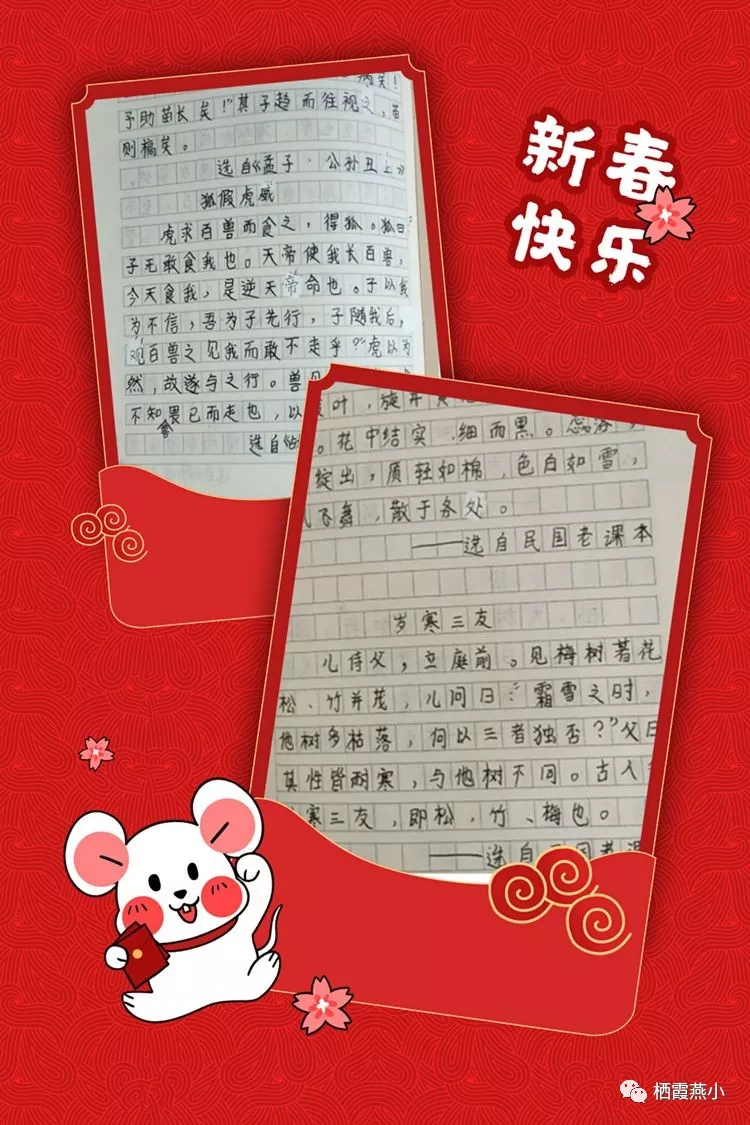 新春
快乐
病矣！
予助苗长矣！”其子趋而往视之，苗
则槁矣。
选自《孟子·公孙丑上》
狐假虎威
虎求百兽而食之，得狐。狐曰：
子无敢食我也。天帝使我长百兽，
今天食我，是逆天帝命也。子以我
为不信，吾为子先行，子随我后，
观百兽之见我而敢不走乎？”虎以为
然，故遂与之行。兽见
不知畏己而走也，以
选自《战
叶，旋开黄
。花中结实，细而黑。
绽出，质轻如棉，色白如雪，
飞舞，散于各处。
——选自民国老课本
岁寒三友
儿侍父，立庭前。见梅树著花
松、竹并茂，儿问曰：“霜雪之时，
他树多枯落，何以三者独否？”父曰
其性皆耐寒，与他树不同。古人
寒三友，即松，竹、梅也。
——选自民国老课
栖霞燕小